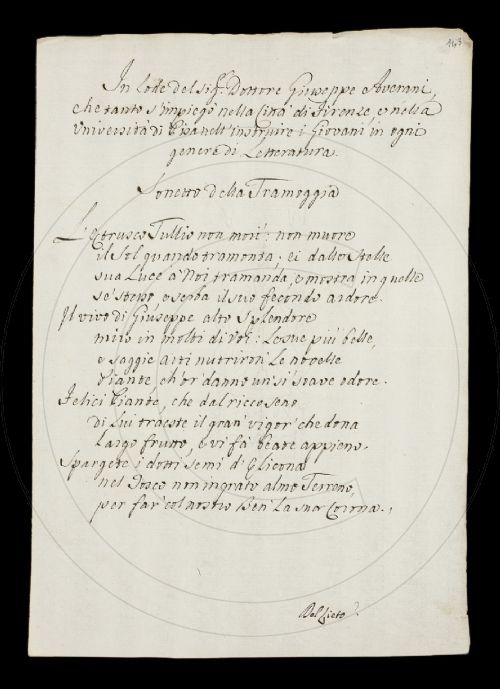 143
In Lode del Sig.r Dottore Giuseppe Averani,
che tanto s'impiegò nella Città di Firenze, e nella
Università di Pisa nell' instruire i Giovani in ogni
genere di Letteratura.
Sonetto della Tramoggia
L'Etrusco Tullio non morì: non muore
il Sol quando tramonta; ei dalle Stelle
sua Luce a Noi tramanda, e mostra in quelle
se stesso, e serba il suo fecondo ardore.
Il vivo di Giuseppe alto splendore
miro in molti di Voi: Le sue più belle,
e sagge arti nutriron' Le novelle
Piante, ch'or' danno un' sì soave odore.
Felici Piante, che dal ricco seno
di Lui traeste il gran' vigor' che dona
Largo frutto, e vi fà beate appieno.
Spargete i dotti semi d'Elicona
nel Tosco non ingrato almo Terreno,
per far' col nostro Ben' La sua Corona.